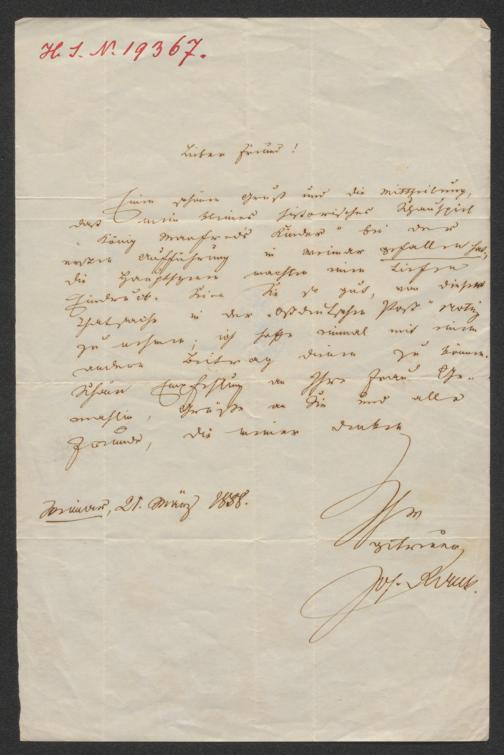 H. I. N. 19367.
Lieber Freund!
Einen schönen Gruß und die Mittheilung,
daß mein kleines historisches Schauspiel
"König Manfreds Kinder" bei der
ersten Aufführung in Weimar gefallen hat,
die Hauptszenen machten einen tiefen
Eindruck. Seien Sie so gut, von dieser
Thatsache in der "Ostdeutschen Post" Notiz
zu nehmen; ich hoffe einmal mit einem
andern Beitrag dienen zu können.
Schöne Empfehlung an Ihre Frau Ge-
mahlin, Grüße an Sie und alle
Freunde, die meiner denken
Weimar, 21. März
Ihr
getreuer
Jos. Rank.